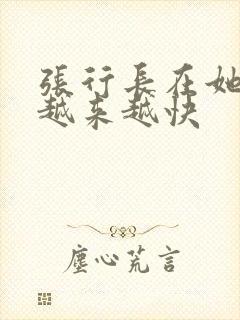 張行長在她
越来越快
塵心荒言